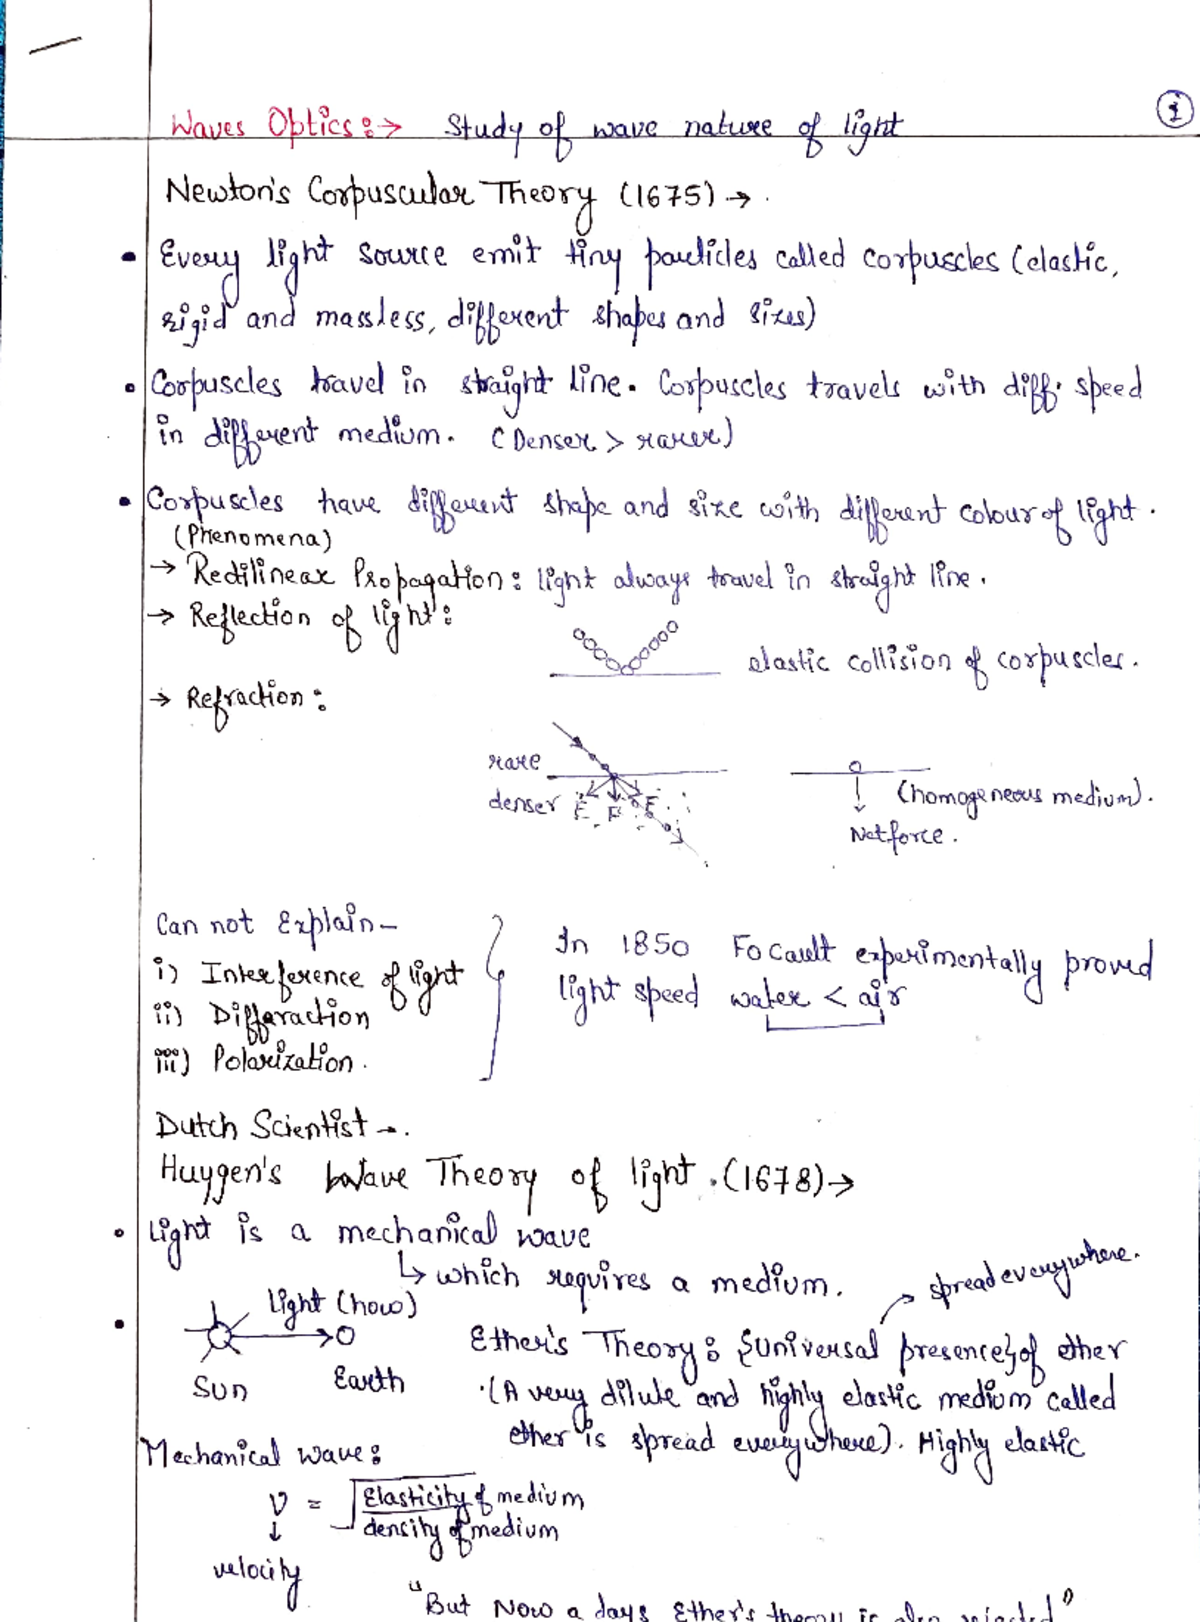 1
Waves Optics :→ Study of wave nature of light
Newton's Corpuscular Theory (1675) →
• Every light source emit tiny particles called corpuscles (elastic,
rigid and massless, different shapes and sizes)
• Corpuscles travel in straight line. Corpuscles travels with diff. speed
in different medium. (Denser > rarer)
• Corpuscles have different shape and size with different colour of light.
(Phenomena)
→ Rectilinear Propagation: light always travel in straight line.
→ Reflection of light:
elastic collision of corpuscles.
→ Refraction:
rare
denser F F F
(homogeneous medium).
Net force.
Can not Explain-
i) Interference of light
ii) Differaction
iii) Polarization.
In 1850 Focault experimentally proved
light speed water < air
Dutch Scientist -.
Huygen's Wave Theory of light. (1678) →
• Light is a mechanical wave
↳ which requires a medium.
→ spread everywhere.
• light (how)
Sun Earth
Ether's Theory: {universal presence} of ether
(A very dilute and highly elastic medium called
ether is spread everywhere). Highly elastic
Mechanical wave:
V = √ Elasticity of medium
density of medium
↓
velocity
"But Now a days Ether's theory is also rejected"